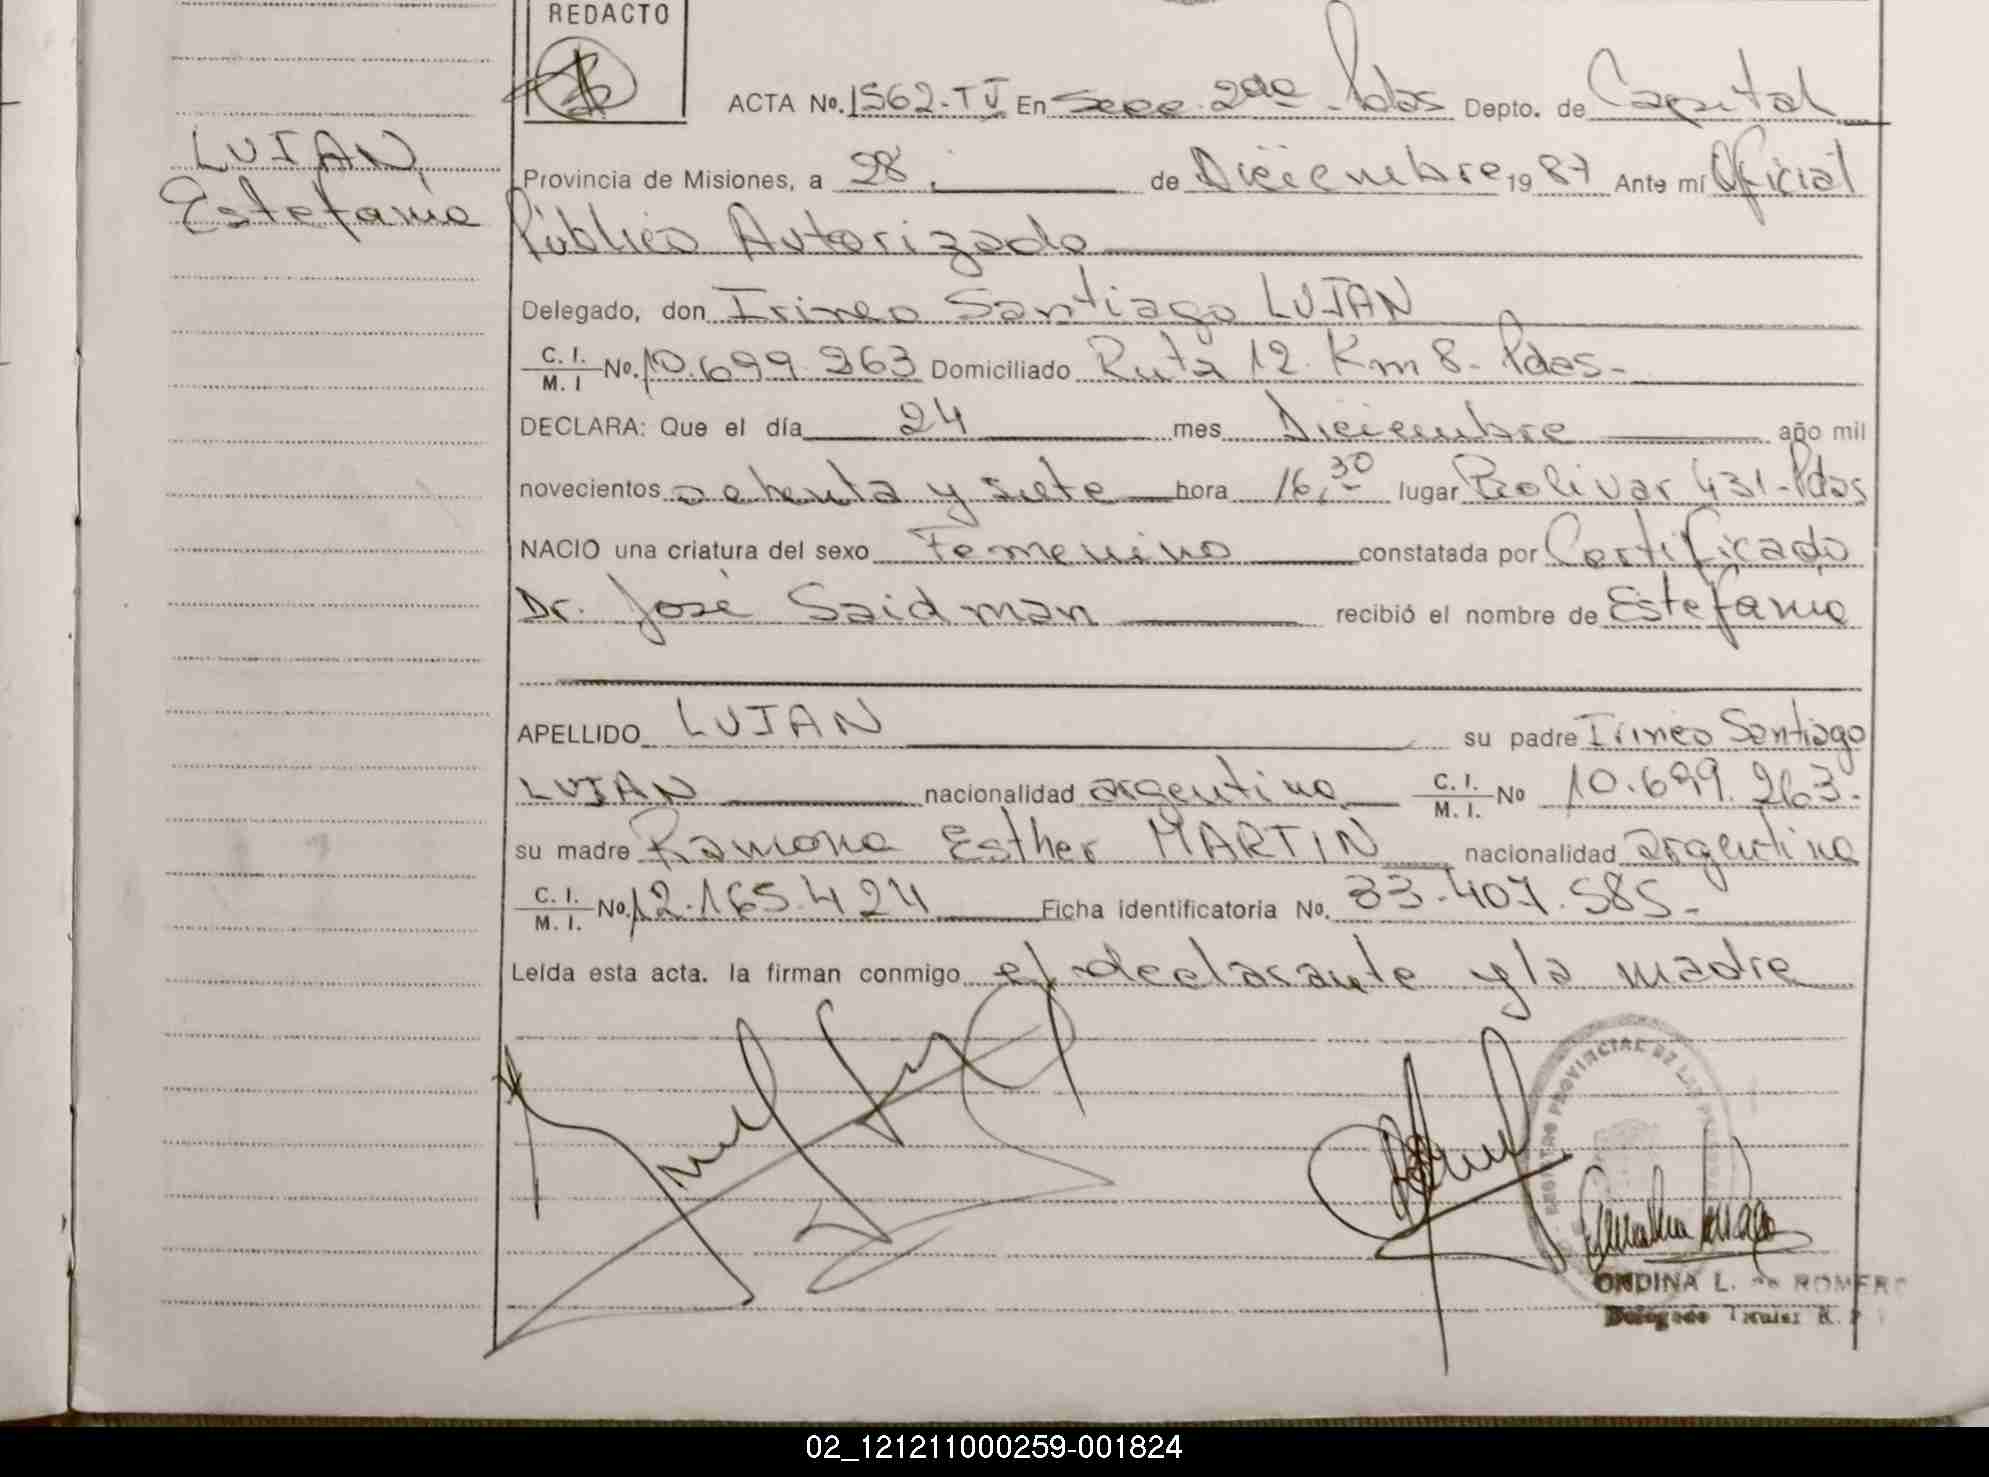 REDACTO
ACTA No. 1562-TV En Secc. 2da Pdas Depto. de Capital
LUJAN,
Provincia de Misiones, a 28 de Diciembre 1987 Ante mí Oficial
Estefania
Público Autorizado
Delegado, don Irineo Santiago LUJAN
C. I. M. I No. 10.699.263 Domiciliado Ruta 12. Km 8- Pdas-
DECLARA: Que el día 24 mes Diciembre año mil
novecientos ochenta y siete hora 16,30 lugar Bolivar 431-Pdas
NACIO una criatura del sexo Femenino constatada por Certificado
Dr. José Saidman recibió el nombre de Estefania
APELLIDO LUJAN su padre Irineo Santiago
LUJAN nacionalidad argentina C. I. M. I. No 10.699.263.
su madre Ramona Esther MARTIN nacionalidad argentina
C. I. M. I. No. 12.165.424 Ficha identificatoria No. 33.407.585-
Leída esta acta. la firman conmigo el declarante y la madre
REGISTRO PROVINCIAL DE LAS
ONDINA L. de ROMERO
Delegado Titular R. P.
02_121211000259-001824